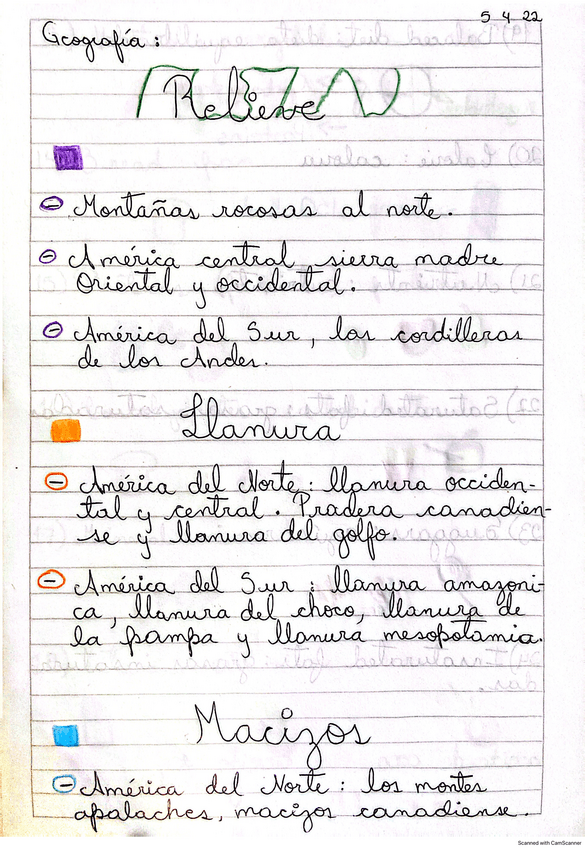 5 4 22
Geografía:
Relieve
Montañas rocosas al norte.
América central sierra madre
Oriental y occidental.
América del Sur, las cordilleras
de los Andes.
Llanura
América del Norte: llanura occiden-
tal y central. Pradera canadien-
se y llanura del golfo.
América del Sur: llanura amazoni-
ca, llanura del choco, llanura de
la pampa y llanura mesopotamia.
Macizos
América del Norte: los montes
apalaches, macizos canadiense.
Scanned with CamScanner